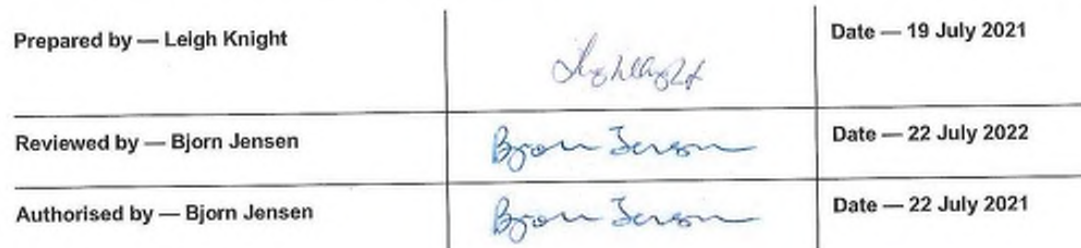 Prepared by — Leigh Knight Date — 19 July 2021
Reviewed by — Bjorn Jensen Bjorn Jensen Date — 22 July 2022
Authorised by — Bjorn Jensen Bjorn Jensen Date — 22 July 2021